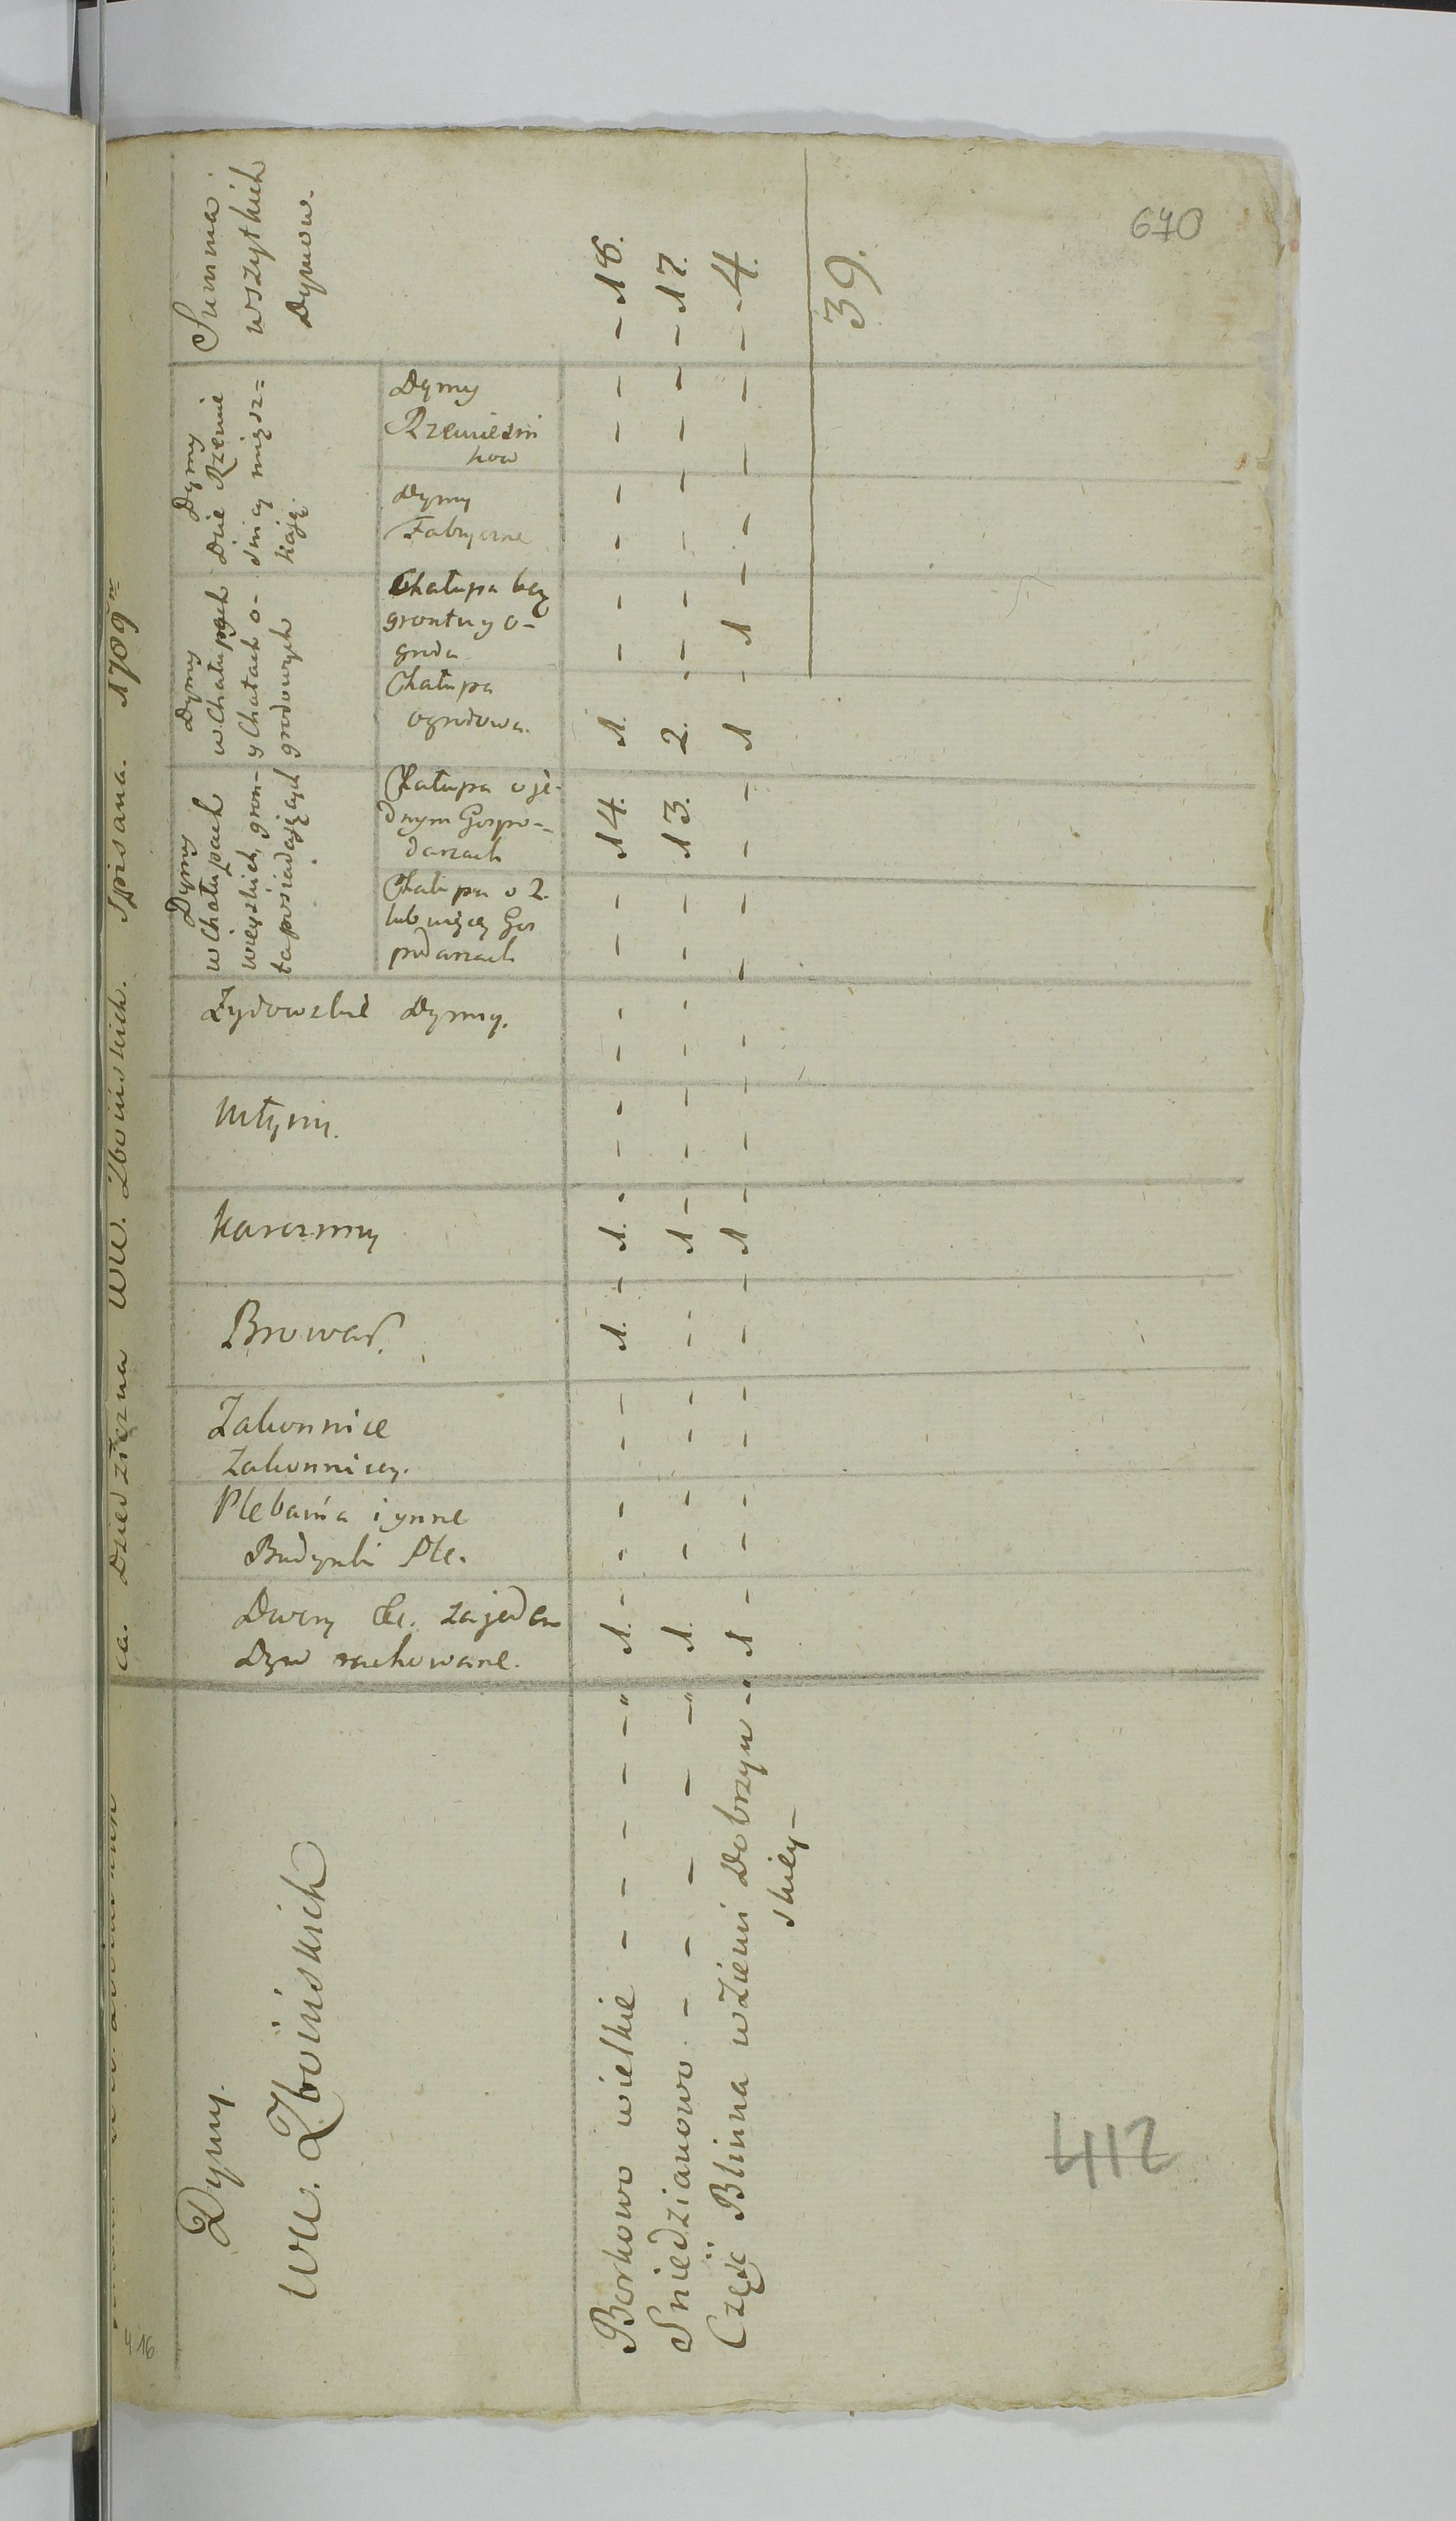 ca. Dziedziczna WW. Zboińskich. Spisana. 1789
Dymy.
WW. Zboińskich
Dwory &c. za jeden
Dym rachowane.
Plebania i ynne
Budynki Ple.
Zakonnice
Zakonnicy.
Browar.
Karczmy
Młyny.
Żydowskie Dymy.
Dymy
w Chałupach
wieyskich, gron-
ta posiadających
Chałupa o 2.
lub więcey Gos
podarzach
Chałupa o je-
dnym Gospo-
darzach
Dymy
w Chałupach
y Chatach o-
grodowych
Chałupa
ogrodowa.
Chałupa bez
grontu y o-
grodu
Dymy
Dzie Rzemie
snicy miesz=
kają.
Dymy
Fabryczne
Dymy
Rzemieśni
kow
Summa
wszytkich
Dymow.
Borkowo wielkie - - - - - " 1. - - - - - 1. - 1. - - - - - - - 14. 1. - - - - - - - 18.
Sniedzianowo. - - - - - " 1. - - - - - - - 1 - - - - - - - 13. 2. - - - - - - - 17.
Część Blinna w Ziemi Dobrzyn - " 1 - - - - - - - 1 - - - - - - - - - 1 - 1 - - - - - - 4.
skiey -
39.
670
412
416